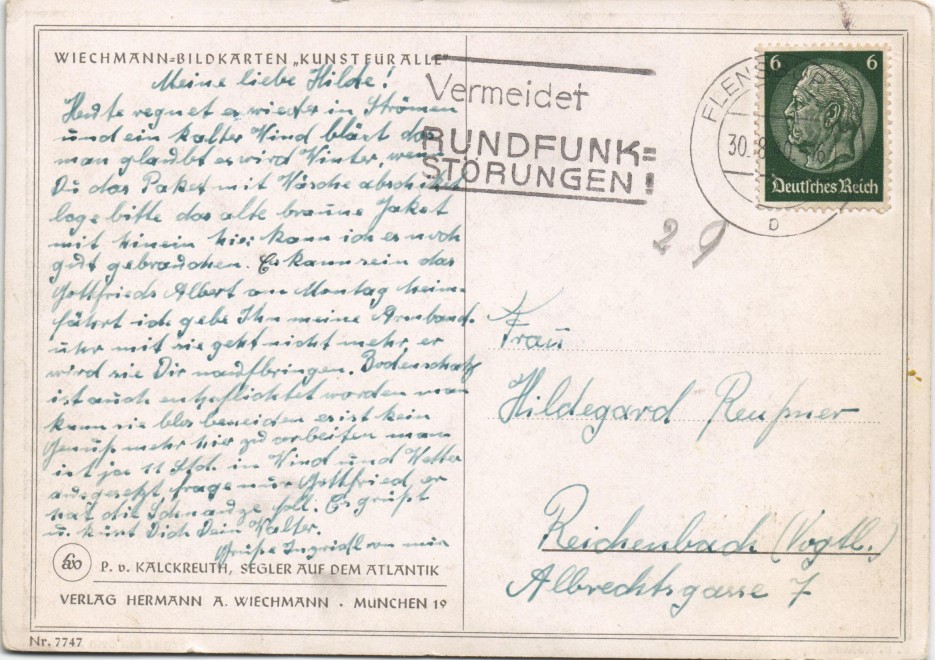 WIECHMANN=BILDKARTEN „KUNST FÜR ALLE"
Meine liebe Hilde!
Heute regnet es wieder in Strömen
und ein kalter Wind bläst das
man glaubt es wird Winter, wenn
Du das Paket mit Wäsche abschickst
lege bitte das alte braune Jaket
mit hinein hier kann ich es noch
gut gebrauchen. Es kann sein das
Gottfrieds Albert am Montag heim-
fährt ich gebe Ihm meine Armband-
uhr mit sie geht nicht mehr er
wird sie Dir bringen. Bodenschatz
ist auch entpflichtet worden man
kann sie blos beneiden es ist kein
Genuß mehr hier zu arbeiten man
ist ja 11 Std. in Wind und Wetter
ausgesetzt, frage nur Gottfried, er
hat die Schnauze foll. Es grüßt
u. küsst Dich Dein Walter.
Grüße von mir
P. v. KALCKREUTH, SEGLER AUF DEM ATLANTIK
VERLAG HERMANN A. WIECHMANN . MÜNCHEN 19
Nr. 7747
Vermeidet
RUNDFUNK=
STÖRUNGEN!
FLENSBURG
30. 8.
D
6 6
Deutsches Reich
29
Frau
Hildegard Reußner
Reichenbach (Vogtl.)
Albrechtsgasse 7